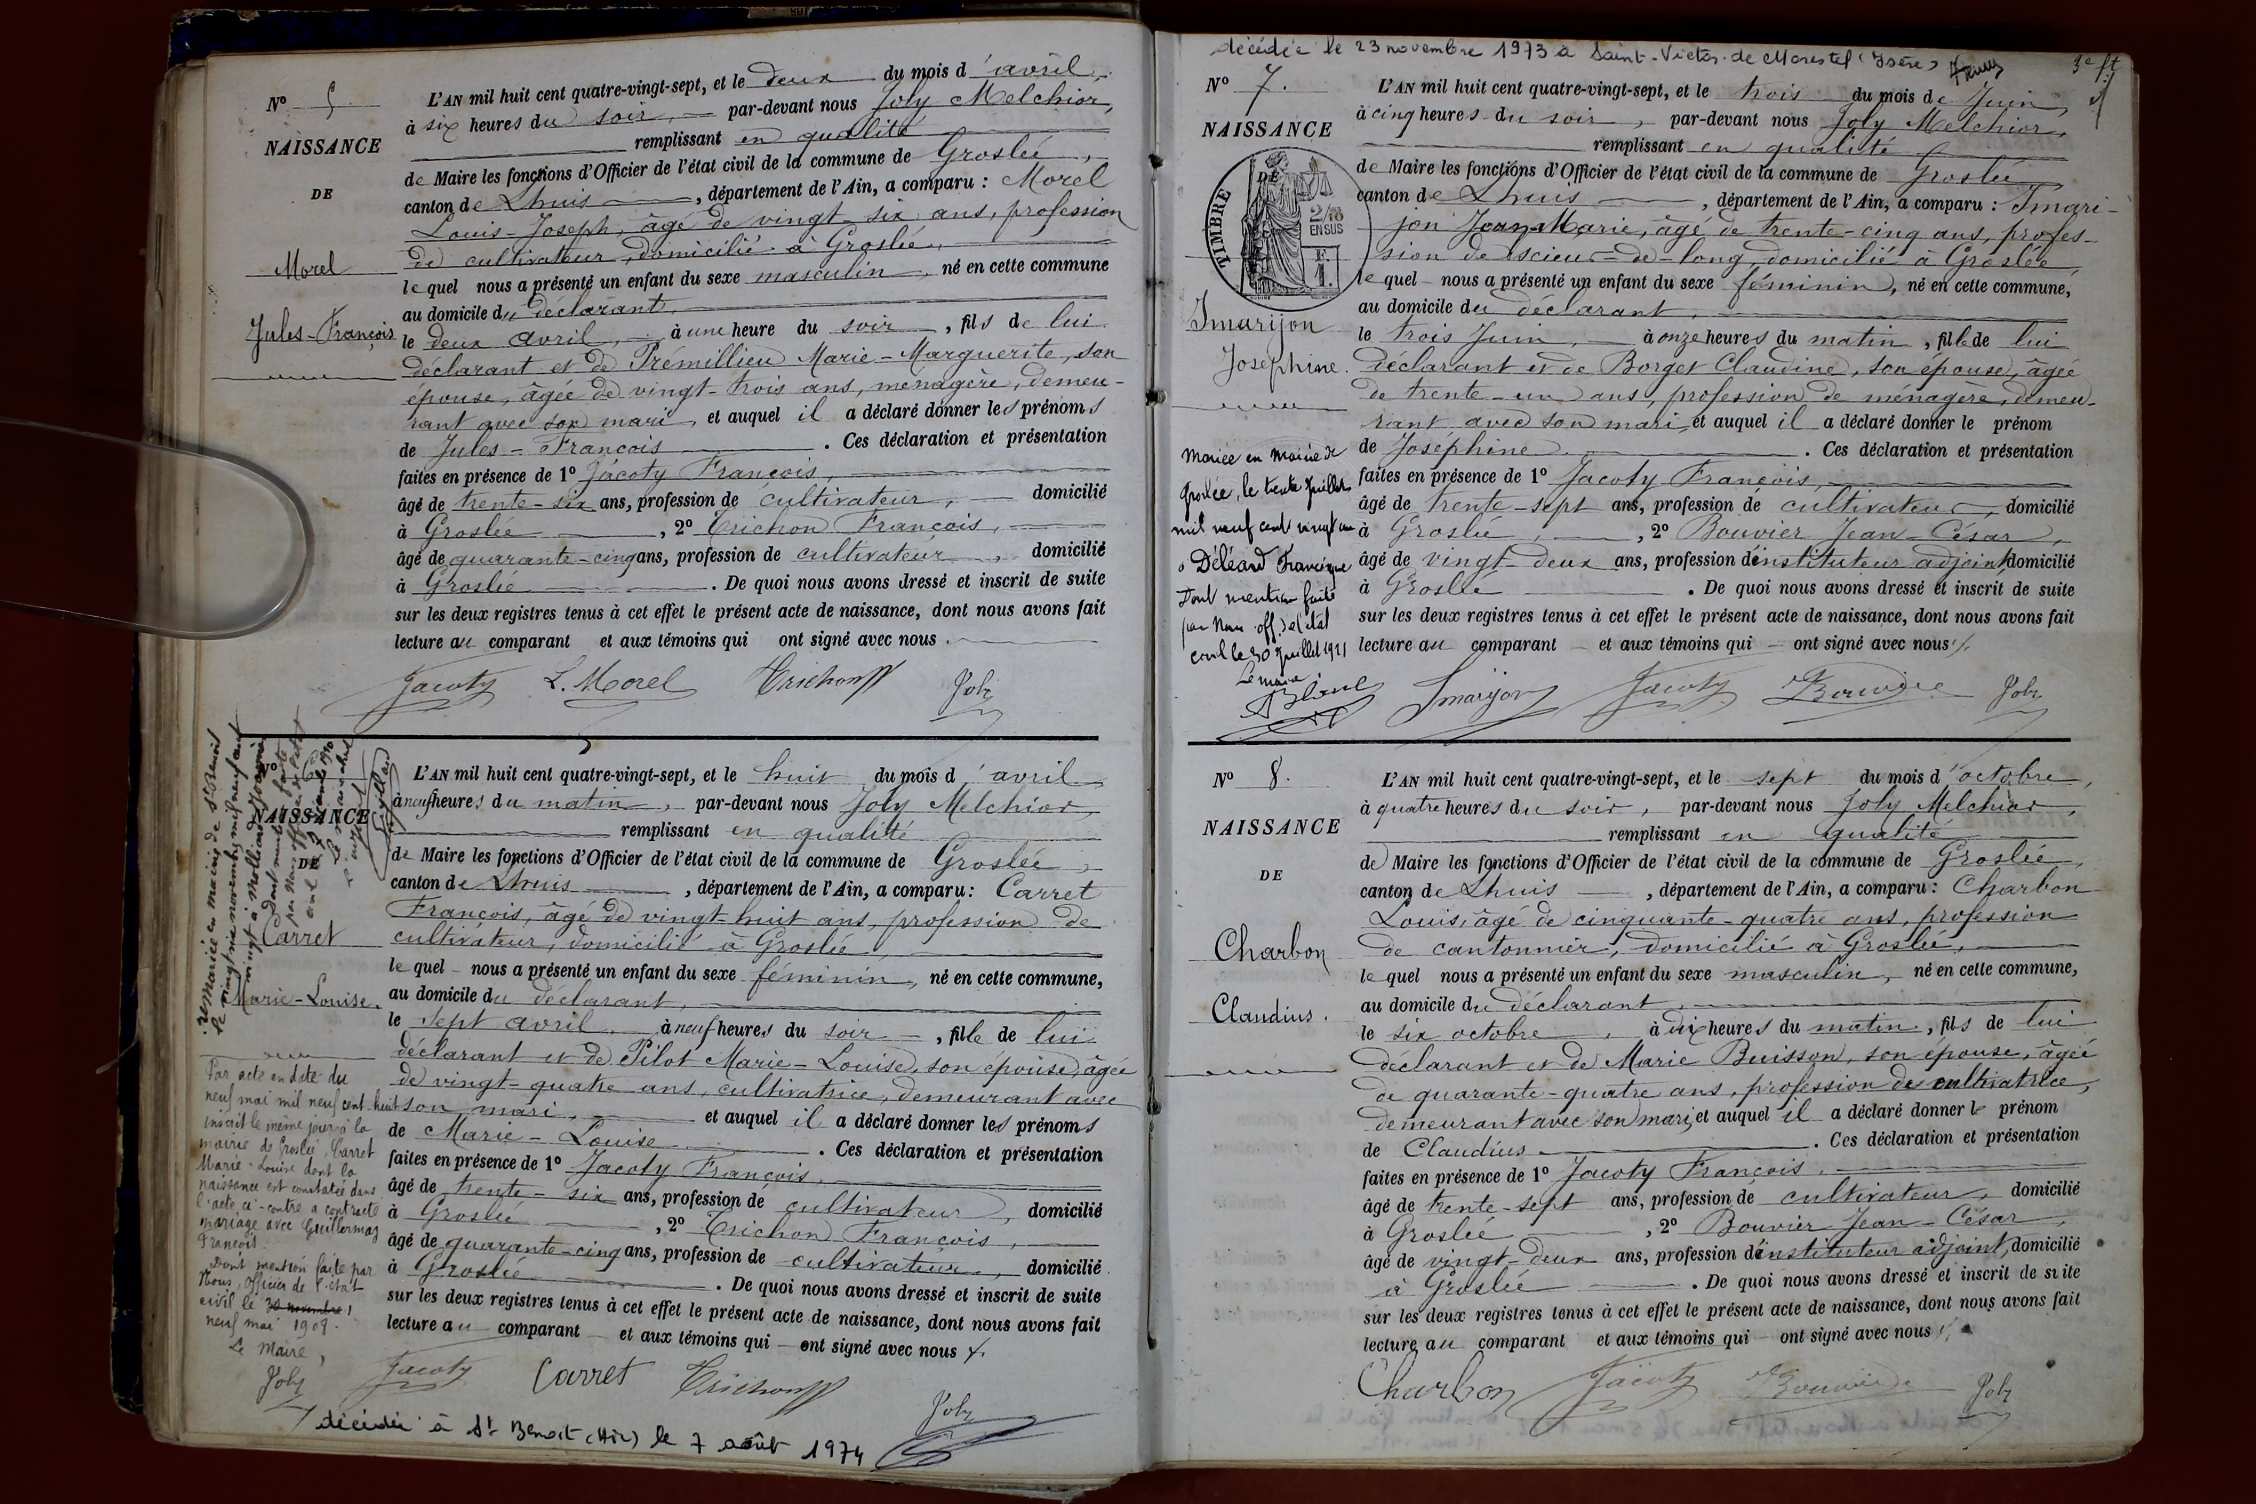 N° 5
NAISSANCE
DE
Morel
Jules-François
L'AN mil huit cent quatre-vingt-sept, et le deux du mois d'avril,
à six heures du soir, par-devant nous Joly Melchior,
remplissant en qualité
de Maire les fonctions d'Officier de l'état civil de la commune de Groslée,
canton de Lhuis, département de l'Ain, a comparu : Morel
Louis-Joseph, âgé de vingt-six ans, profession
de cultivateur, domicilié à Groslée,
lequel nous a présenté un enfant du sexe masculin, né en cette commune
au domicile du déclarant,
le deux avril, à une heure du soir, fils de lui
déclarant et de Prémillieu Marie-Marguerite, son
épouse, âgée de vingt-trois ans, ménagère, demeu-
rant avec son mari, et auquel il a déclaré donner les prénoms
de Jules-François. Ces déclaration et présentation
faites en présence de 1° Jacoty François,
âgé de trente-six ans, profession de cultivateur, domicilié
à Groslée, 2° Trichon François,
âgé de quarante-cinq ans, profession de cultivateur, domicilié
à Groslée. De quoi nous avons dressé et inscrit de suite
sur les deux registres tenus à cet effet le présent acte de naissance, dont nous avons fait
lecture au comparant et aux témoins qui ont signé avec nous.
Jacoty L. Morel Trichon Joly
N° 6
NAISSANCE
DE
Carret
Marie-Louise.
remariée en mairie de St Benoit
le vingt six novembre mil neuf cent
vingt à Molliard
dont mention faite
par nous officier de l'état
civil
L'AN mil huit cent quatre-vingt-sept, et le huit du mois d'avril
à neuf heures du matin, par-devant nous Joly Melchior,
remplissant en qualité
de Maire les fonctions d'Officier de l'état civil de la commune de Groslée,
canton de Lhuis, département de l'Ain, a comparu : Carret
François, âgé de vingt-huit ans, profession de
cultivateur, domicilié à Groslée,
lequel nous a présenté un enfant du sexe féminin, né en cette commune,
au domicile du déclarant,
le sept avril, à neuf heures du soir, fille de lui
déclarant et de Pilot Marie-Louise, son épouse, âgée
de vingt-quatre ans, cultivatrice, demeurant avec
son mari, et auquel il a déclaré donner les prénoms
de Marie-Louise. Ces déclaration et présentation
faites en présence de 1° Jacoty François,
âgé de trente-six ans, profession de cultivateur, domicilié
à Groslée, 2° Trichon François,
âgé de quarante-cinq ans, profession de cultivateur, domicilié
à Groslée. De quoi nous avons dressé et inscrit de suite
sur les deux registres tenus à cet effet le présent acte de naissance, dont nous avons fait
lecture au comparant et aux témoins qui ont signé avec nous.
Par acte en date du
neuf mai mil neuf cent huit
inscrit le même jour à la
mairie de Groslée, Carret
Marie-Louise dont la
naissance est constatée dans
l'acte ci-contre a contracté
mariage avec Guillermaz
François.
Dont mention faite par
Nous, Officier de l'état
civil le 30 novembre
neuf mai 1908.
Le Maire,
Joly
Jacoty Carret Trichon Joly
décédée à St Benoit (Ain) le 7 août 1974
décédée le 23 novembre 1973 à Saint-Victor-de-Morestel (Isère)
3e ft
N° 7.
NAISSANCE
DE
TIMBRE
2/10
EN SUS
F.
1.
Imarijon
Josephine.
L'AN mil huit cent quatre-vingt-sept, et le trois du mois de Juin,
à cinq heures du soir, par-devant nous Joly Melchior,
remplissant en qualité
de Maire les fonctions d'Officier de l'état civil de la commune de Groslée
canton de Lhuis, département de l'Ain, a comparu : Imari-
jon Jean-Marie, âgé de trente-cinq ans, profes-
sion de scieur-de-long, domicilié à Groslée,
lequel nous a présenté un enfant du sexe féminin, né en cette commune,
au domicile du déclarant,
le trois Juin, à onze heures du matin, fille de lui
déclarant et de Borget Claudine, son épouse, âgée
de trente-un ans, profession de ménagère, demeu-
rant avec son mari, et auquel il a déclaré donner le prénom
de Josephine. Ces déclaration et présentation
faites en présence de 1° Jacoty François,
âgé de trente-sept ans, profession de cultivateur, domicilié
à Groslée, 2° Bouvier Jean-César,
âgé de vingt-deux ans, profession d'instituteur adjoint, domicilié
à Groslée. De quoi nous avons dressé et inscrit de suite
sur les deux registres tenus à cet effet le présent acte de naissance, dont nous avons fait
lecture au comparant et aux témoins qui ont signé avec nous.
Mariée en mairie de
Groslée, le trente Juillet
mil neuf cent vingt un
à Déléard Francisque
Dont mention faite
par Nous off. de l'état
civil le 30 Juillet 1921
Le maire
Imarijon Jacoty Bouvier Joly
N° 8.
NAISSANCE
DE
Charbon
Claudius.
L'AN mil huit cent quatre-vingt-sept, et le sept du mois d'octobre,
à quatre heures du soir, par-devant nous Joly Melchior,
remplissant en qualité
de Maire les fonctions d'Officier de l'état civil de la commune de Groslée,
canton de Lhuis, département de l'Ain, a comparu : Charbon
Louis, âgé de cinquante-quatre ans, profession
de cantonnier, domicilié à Groslée,
lequel nous a présenté un enfant du sexe masculin, né en cette commune,
au domicile du déclarant,
le six octobre, à dix heures du matin, fils de lui
déclarant et de Marie Buisson, son épouse, âgée
de quarante-quatre ans, profession de cultivatrice,
demeurant avec son mari, et auquel il a déclaré donner le prénom
de Claudius. Ces déclaration et présentation
faites en présence de 1° Jacoty François,
âgé de trente-sept ans, profession de cultivateur, domicilié
à Groslée, 2° Bouvier Jean-César,
âgé de vingt-deux ans, profession d'instituteur adjoint, domicilié
à Groslée. De quoi nous avons dressé et inscrit de suite
sur les deux registres tenus à cet effet le présent acte de naissance, dont nous avons fait
lecture au comparant et aux témoins qui ont signé avec nous.
Charbon Jacoty Bouvier Joly